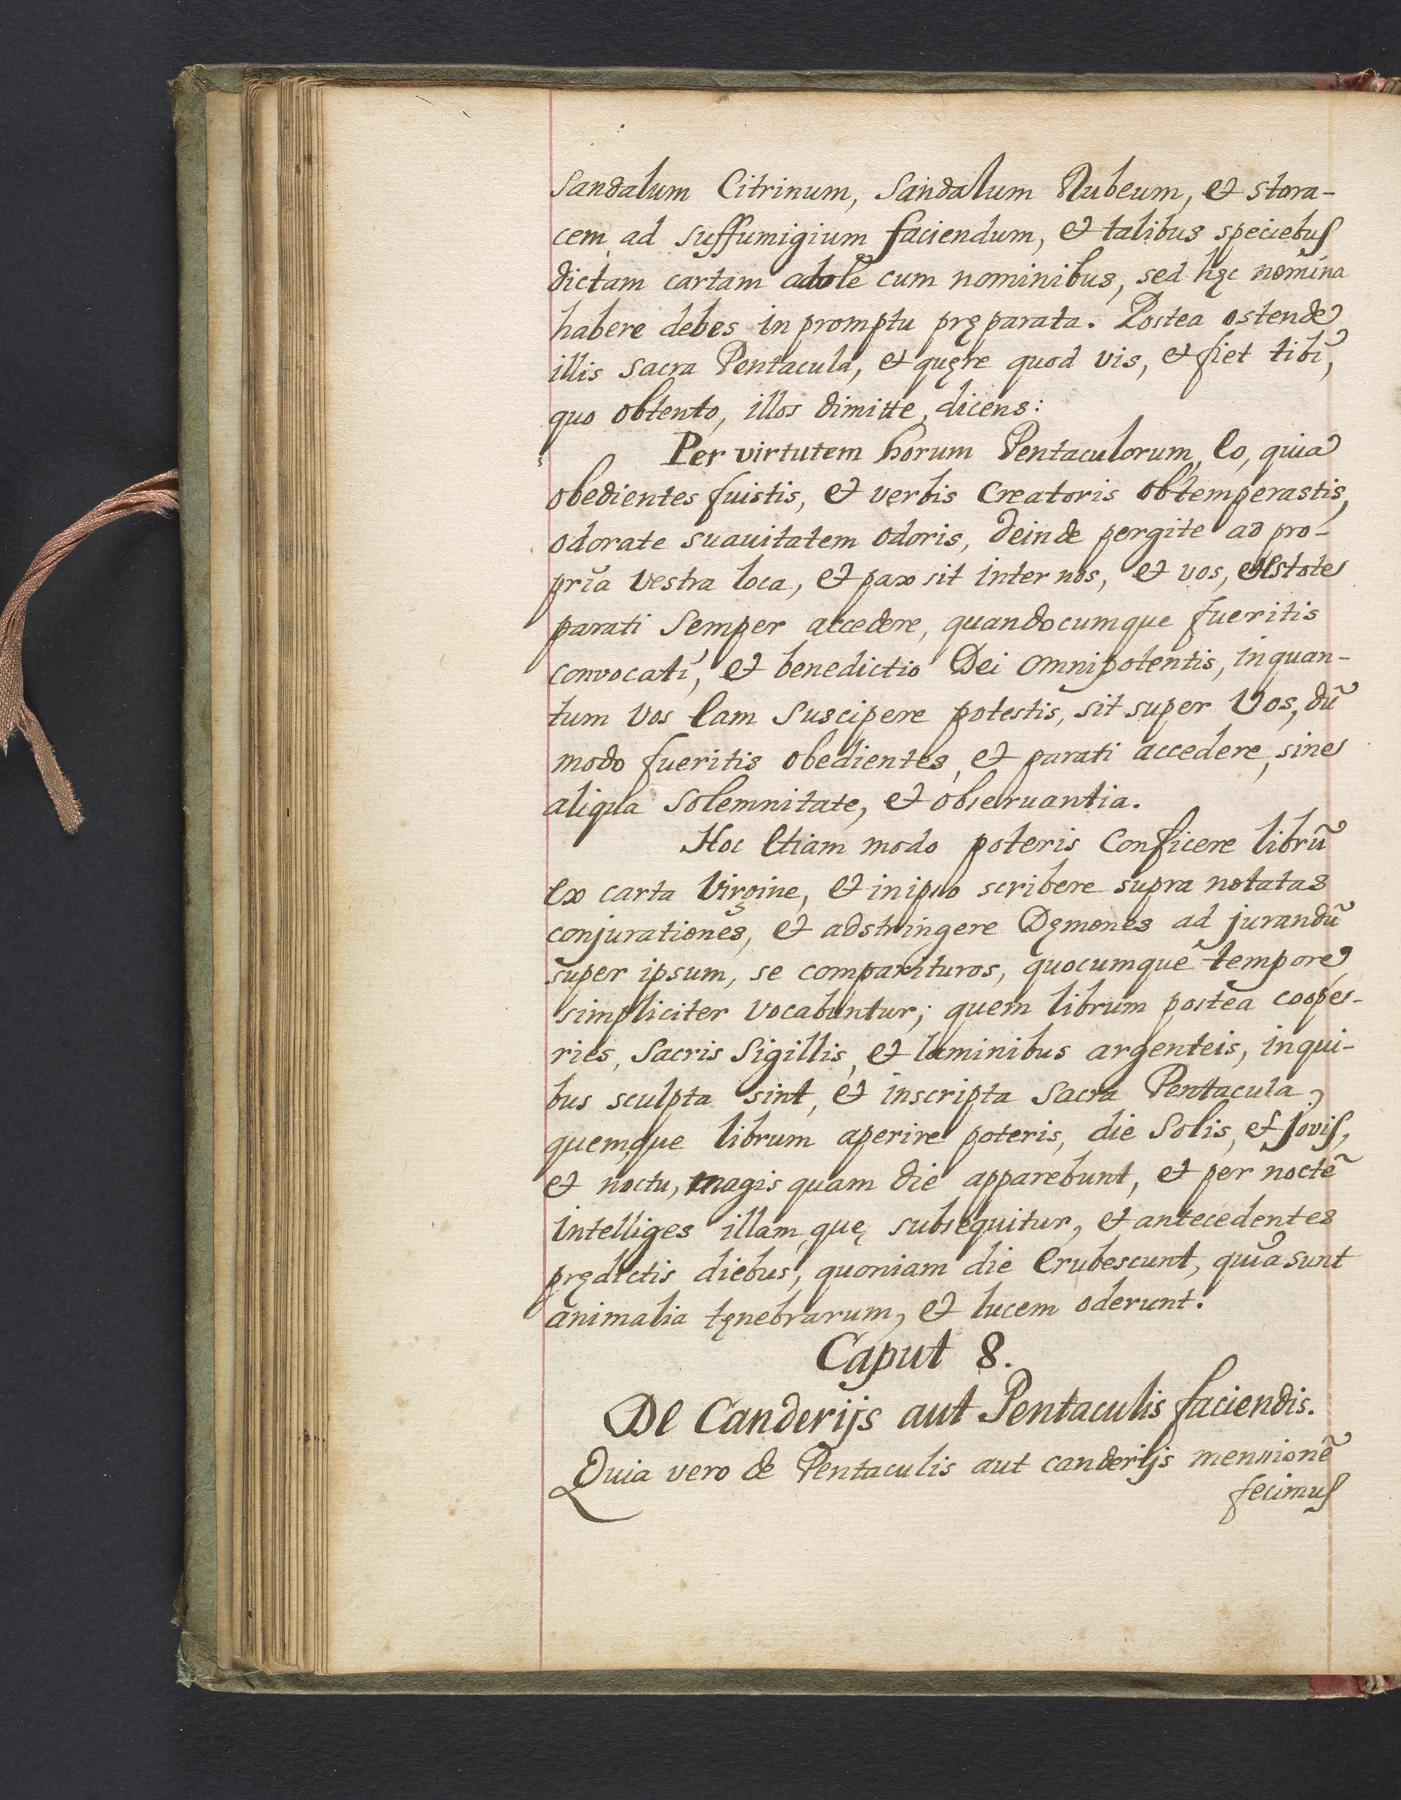 Sandalum Citrinum, Sandalum Rubeum, et stora-
cem ad suffumigium faciendum, et talibus speciebus
dictam cartam adolē cum nominibus, sed hęc nomina
habere debes in promptu pręparata. Postea ostende
illis Sacra Pentacula, et quęre quod vis, et fiet tibi,
quo obtento, illos dimitte, dicens:
Per virtutem horum Pentaculorum, Eo, quia
obedientes fuistis, et verbis Creatoris obtemperastis,
odorate suauitatem odoris, deinde pergite ad pro-
pria vestra loca, et pax sit inter nos, et vos, estote
parati Semper accedere, quandocumque fueritis
convocati, et benedictio Dei Omnipotentis, inquan-
tum Vos Eam Suscipere potestis, sit super Vos, dū
modo fueritis obedientes, et parati accedere, sine
aliqua Solemnitate, et obseruantia.
Hoc Etiam modo poteris Conficere librū
Ex carta Virgine, et inipso scribere supra notatas
conjurationes, et adstringere Dęmones ad jurandū
super ipsum, se comparituros, quocumque tempore
simpliciter vocabuntur; quem librum postea coope-
ries, Sacris Sigillis, et laminibus argenteis, inqui-
bus sculpta sint, et inscripta Sacra Pentacula,
quemque librum aperire poteris, die Solis, et Jovis,
et noctu, magis quam die apparebunt, et per noctē
intelliges illam, quę subsequitur, et antecedentes
prędictis diebus, quoniam die Erubescunt, quia sunt
animalia tęnebrarum, et lucem oderunt.
Caput 8.
De Canderijs aut Pentaculis faciendis.
Quia vero de Pentaculis aut canderijs mensionē
fecimus